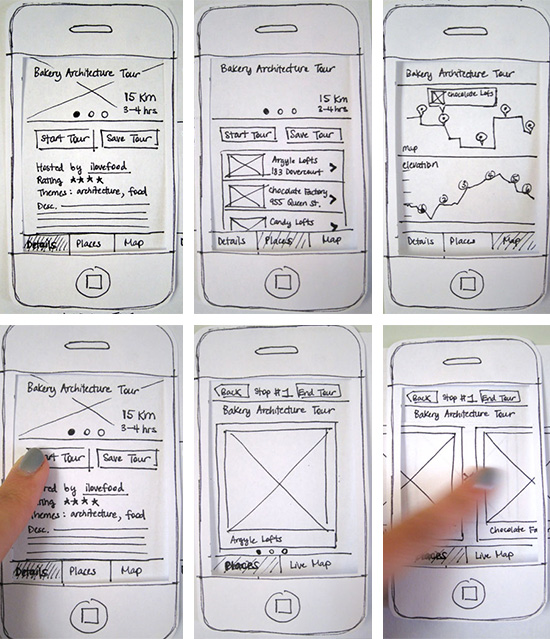 Bakery Architecture Tour
15 Km
3-4 hrs
Start Tour Save Tour
Hosted by ilovefood
Rating ★★★★
Themes: architecture, food
Desc.
Details Places Map
Bakery Architecture Tour
15 Km
Start Tour Save Tour
Argyle Lofts
183 Dovercourt
Chocolate Factory
955 Queen St.
Candy Lofts
Details Places Map
Bakery Architecture Tour
Chocolate Lofts
map
elevation
Details Places Map
Bakery Architecture Tour
15 Km
3-4 hrs
Tour Save Tour
by ilovefood
★★★★
hemes: architecture, food
Desc.
Details Places Map
Back Stop #1 End Tour
Bakery Architecture Tour
Argyle Lofts
Places Live Map
Back Stop #1 End Tour
Bakery Architecture Tour
Chocolate Fa
Places Live Map